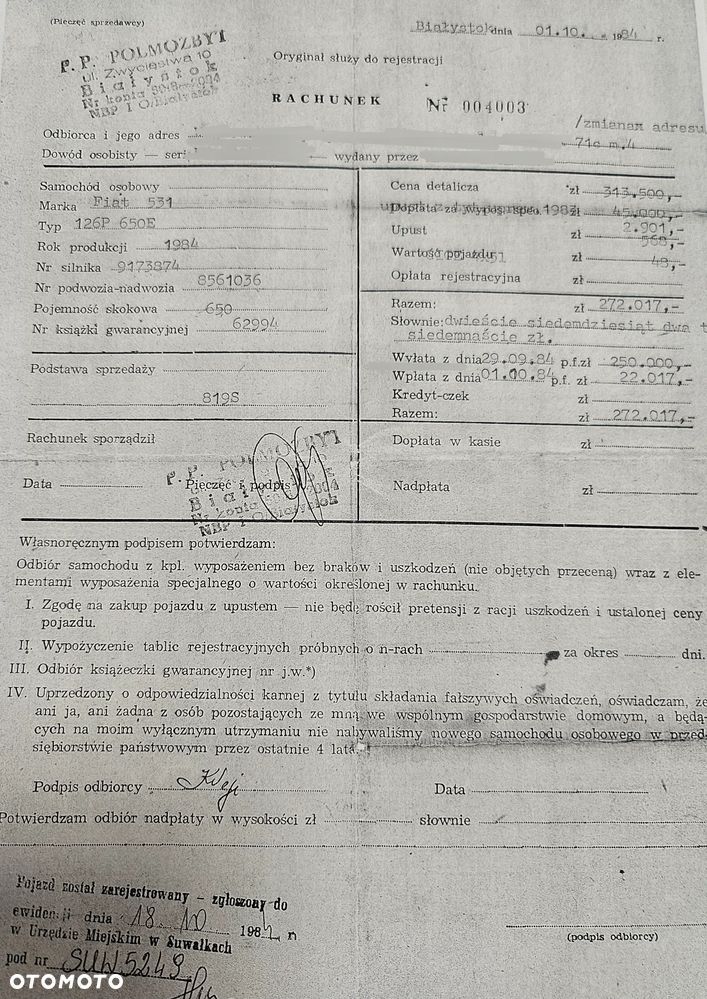 (Pieczęć sprzedawcy)
Białystok dnia 01.10. 1984 r.
P. P. POLMOZBYT
ul. Zwycięstwa 10
Białystok
Nr konta
NBP I O/Białystok
Oryginał służy do rejestracji
RACHUNEK Nr 004003
/zmianam adresu
Odbiorca i jego adres
71c m.4
Dowód osobisty — seri wydany przez
Samochód osobowy
Marka Fiat 531
Typ 126P 650E
Rok produkcji 1984
Nr silnika 9173874
Nr podwozia-nadwozia 8561036
Pojemność skokowa 650
Nr książki gwarancyjnej 62994
Podstawa sprzedaży
819S
Rachunek sporządził
Data Pieczęć i podpis
P. P. POLMOZBYT
NBP I O/Białystok
Cena detaliczna zł 313,500,-
Dopłata za wypos. spec. zł 45.000,-
Upust zł 2.901,-
560,-
Wartość pojazdu zł 48,-
Opłata rejestracyjna zł
Razem: zł 272.017,-
Słownie: dwieście siedemdziesiąt dwa t
siedemnaście zł.
Wyłata z dnia 29.09.84 p.f.zł 250.000,-
Wpłata z dnia 01.00.84 p.f. zł 22.017,-
Kredyt-czek zł
Razem: zł 272.017,-
Dopłata w kasie zł
Nadpłata zł
Własnoręcznym podpisem potwierdzam:
Odbiór samochodu z kpl. wyposażeniem bez braków i uszkodzeń (nie objętych przeceną) wraz z ele-
mentami wyposażenia specjalnego o wartości określonej w rachunku.
I. Zgodę na zakup pojazdu z upustem — nie będę rościł pretensji z racji uszkodzeń i ustalonej ceny
pojazdu.
II. Wypożyczenie tablic rejestracyjnych próbnych o n-rach za okres dni.
III. Odbiór książeczki gwarancyjnej nr j.w.*)
IV. Uprzedzony o odpowiedzialności karnej z tytułu składania fałszywych oświadczeń, oświadczam, że
ani ja, ani żadna z osób pozostających ze mną we wspólnym gospodarstwie domowym, a będą-
cych na moim wyłącznym utrzymaniu nie nabywaliśmy nowego samochodu osobowego w przed-
siębiorstwie państwowym przez ostatnie 4 lata.
Podpis odbiorcy Data
Potwierdzam odbiór nadpłaty w wysokości zł słownie
Pojazd został zarejestrowany – zgłoszony do
ewidencji dnia 18.10 1984 r
w Urzędzie Miejskim w Suwałkach
pod nr SUW5249
(podpis odbiorcy)
OTOMOTO